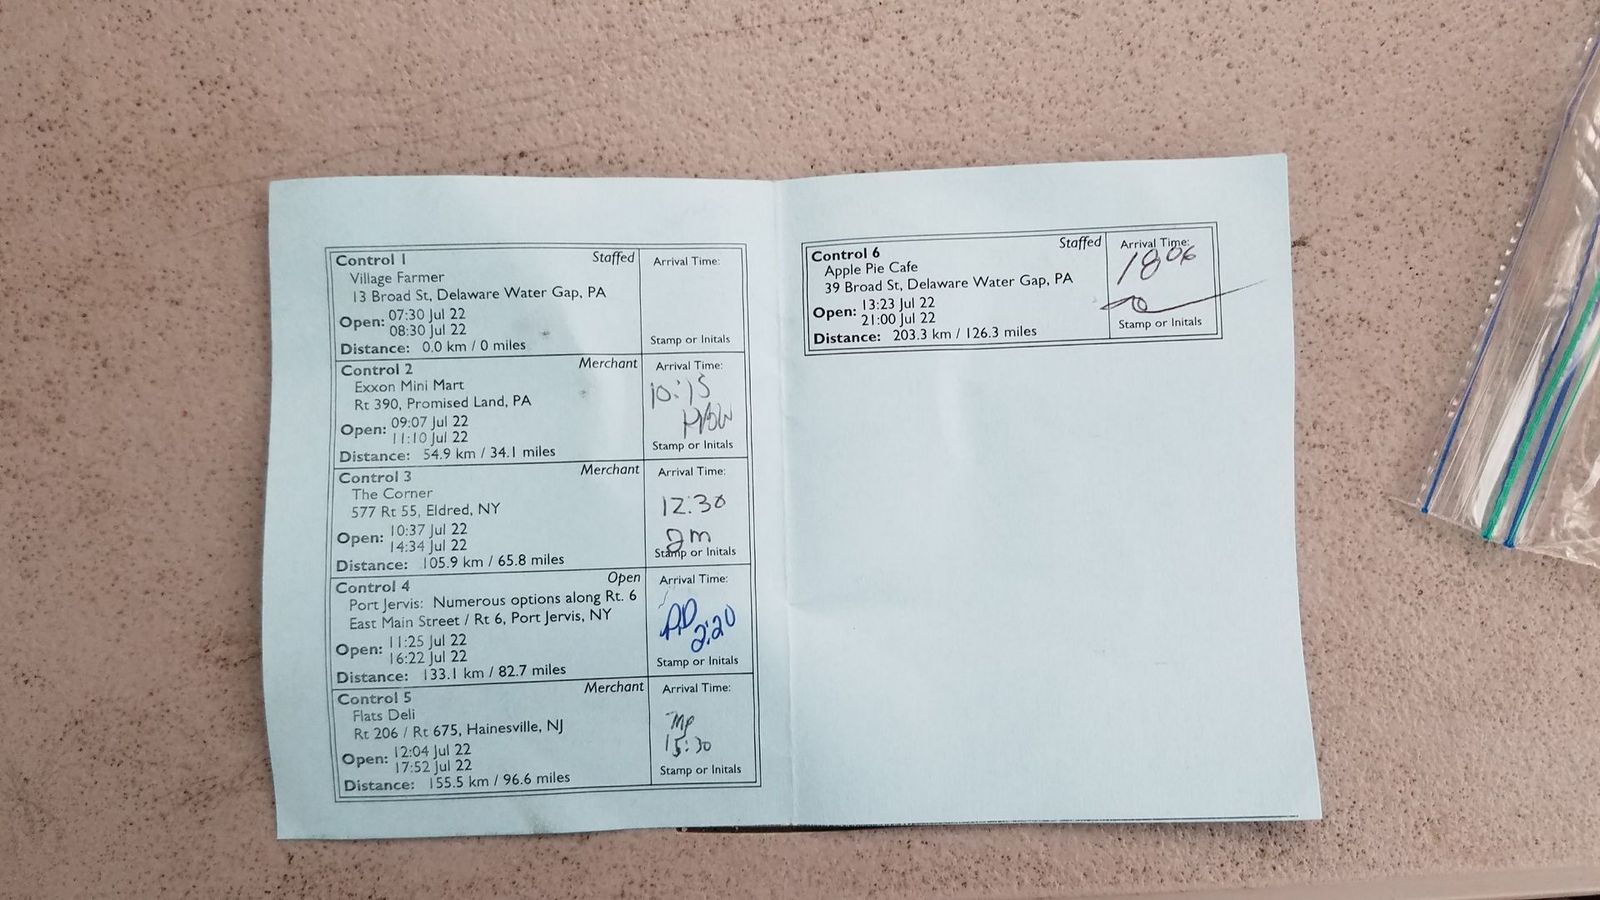 Control 1 Staffed Arrival Time:
Village Farmer
13 Broad St, Delaware Water Gap, PA
Open: 07:30 Jul 22
08:30 Jul 22
Distance: 0.0 km / 0 miles Stamp or Initals
Control 2 Merchant Arrival Time:
Exxon Mini Mart 10:15
Rt 390, Promised Land, PA
Open: 09:07 Jul 22
11:10 Jul 22
Distance: 54.9 km / 34.1 miles Stamp or Initals
Control 3 Merchant Arrival Time:
The Corner 12:30
577 Rt 55, Eldred, NY
Open: 10:37 Jul 22
14:34 Jul 22 Stamp or Initals
Distance: 105.9 km / 65.8 miles
Control 4 Open Arrival Time:
Port Jervis: Numerous options along Rt. 6
East Main Street / Rt 6, Port Jervis, NY 2:20
Open: 11:25 Jul 22
16:22 Jul 22 Stamp or Initals
Distance: 133.1 km / 82.7 miles
Control 5 Merchant Arrival Time:
Flats Deli
Rt 206 / Rt 675, Hainesville, NJ
Open: 12:04 Jul 22 15:30
17:52 Jul 22 Stamp or Initals
Distance: 155.5 km / 96.6 miles
Control 6 Staffed Arrival Time:
Apple Pie Cafe 18 06
39 Broad St, Delaware Water Gap, PA
Open: 13:23 Jul 22
21:00 Jul 22 Stamp or Initals
Distance: 203.3 km / 126.3 miles